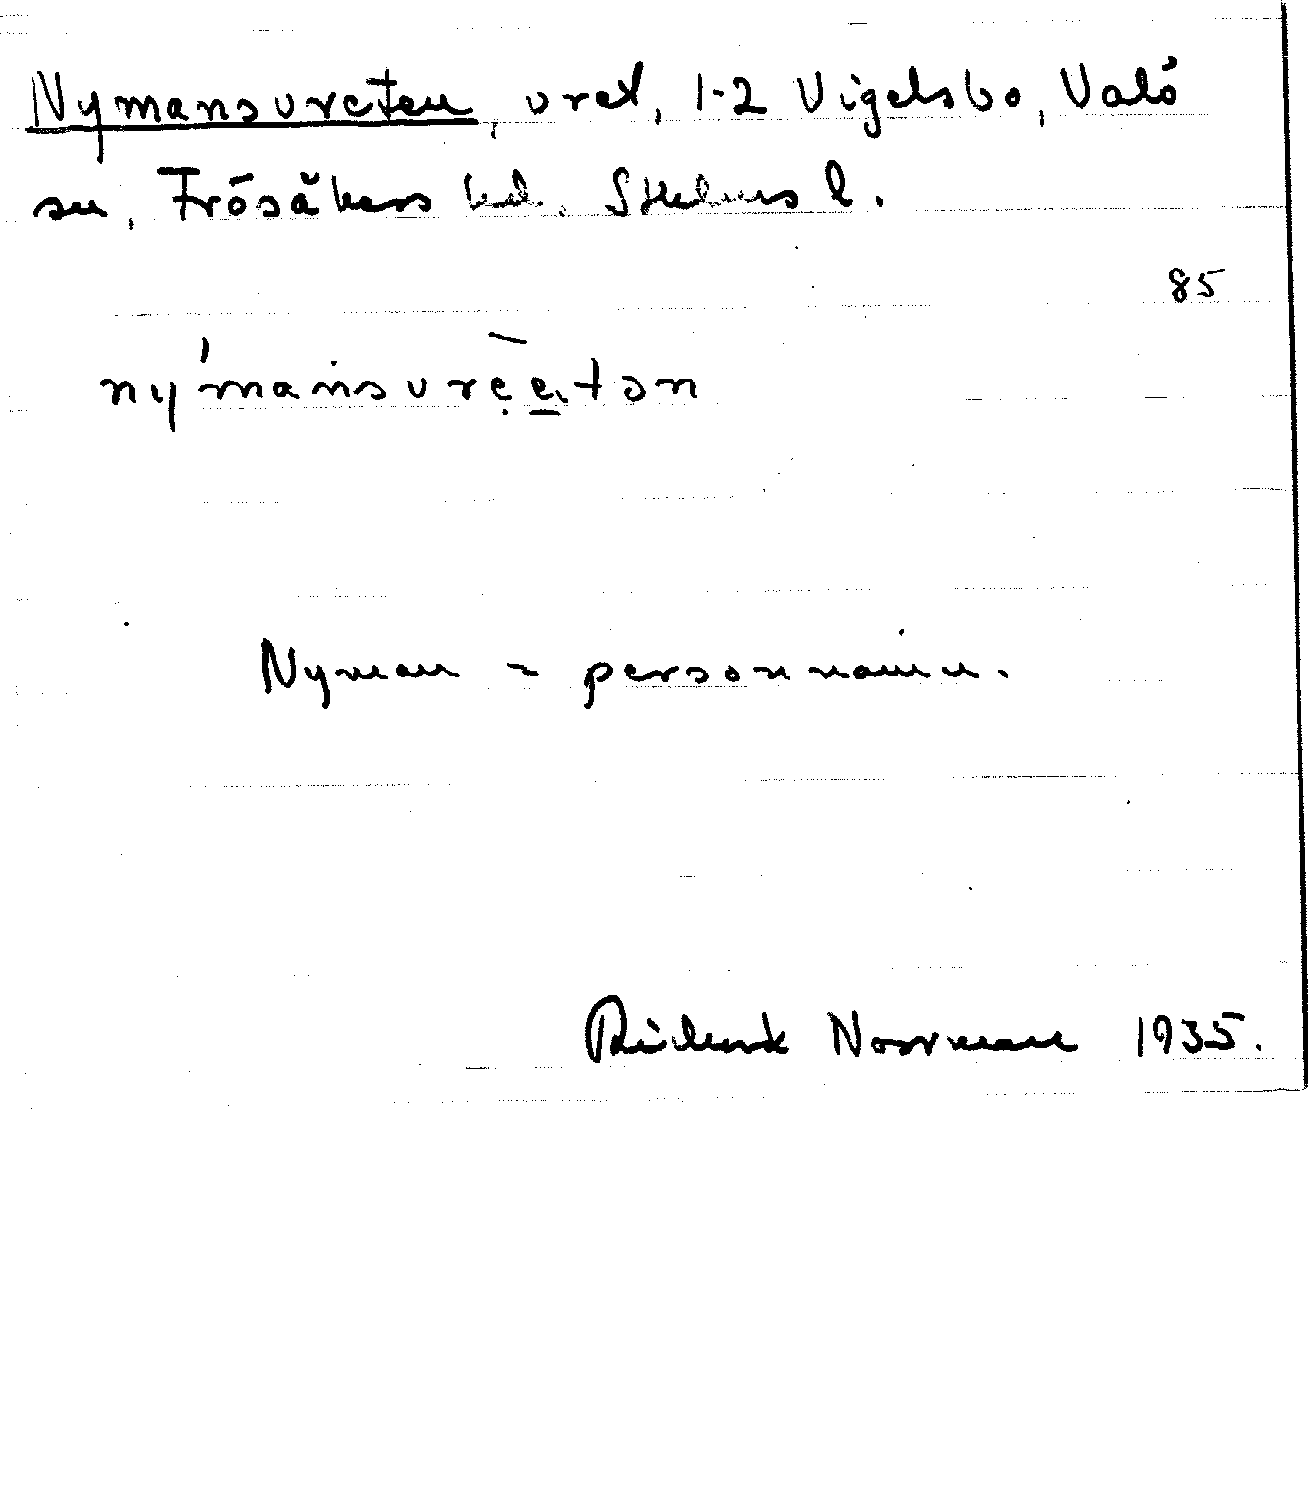 Nymansvreten, vret, 1-2 Vigelsbo, Valö
sn, Frösåkers hd. Sthlms l.
85
nýmansvrèe̱tən
Nyman = personnamn.
Norrman 1935.